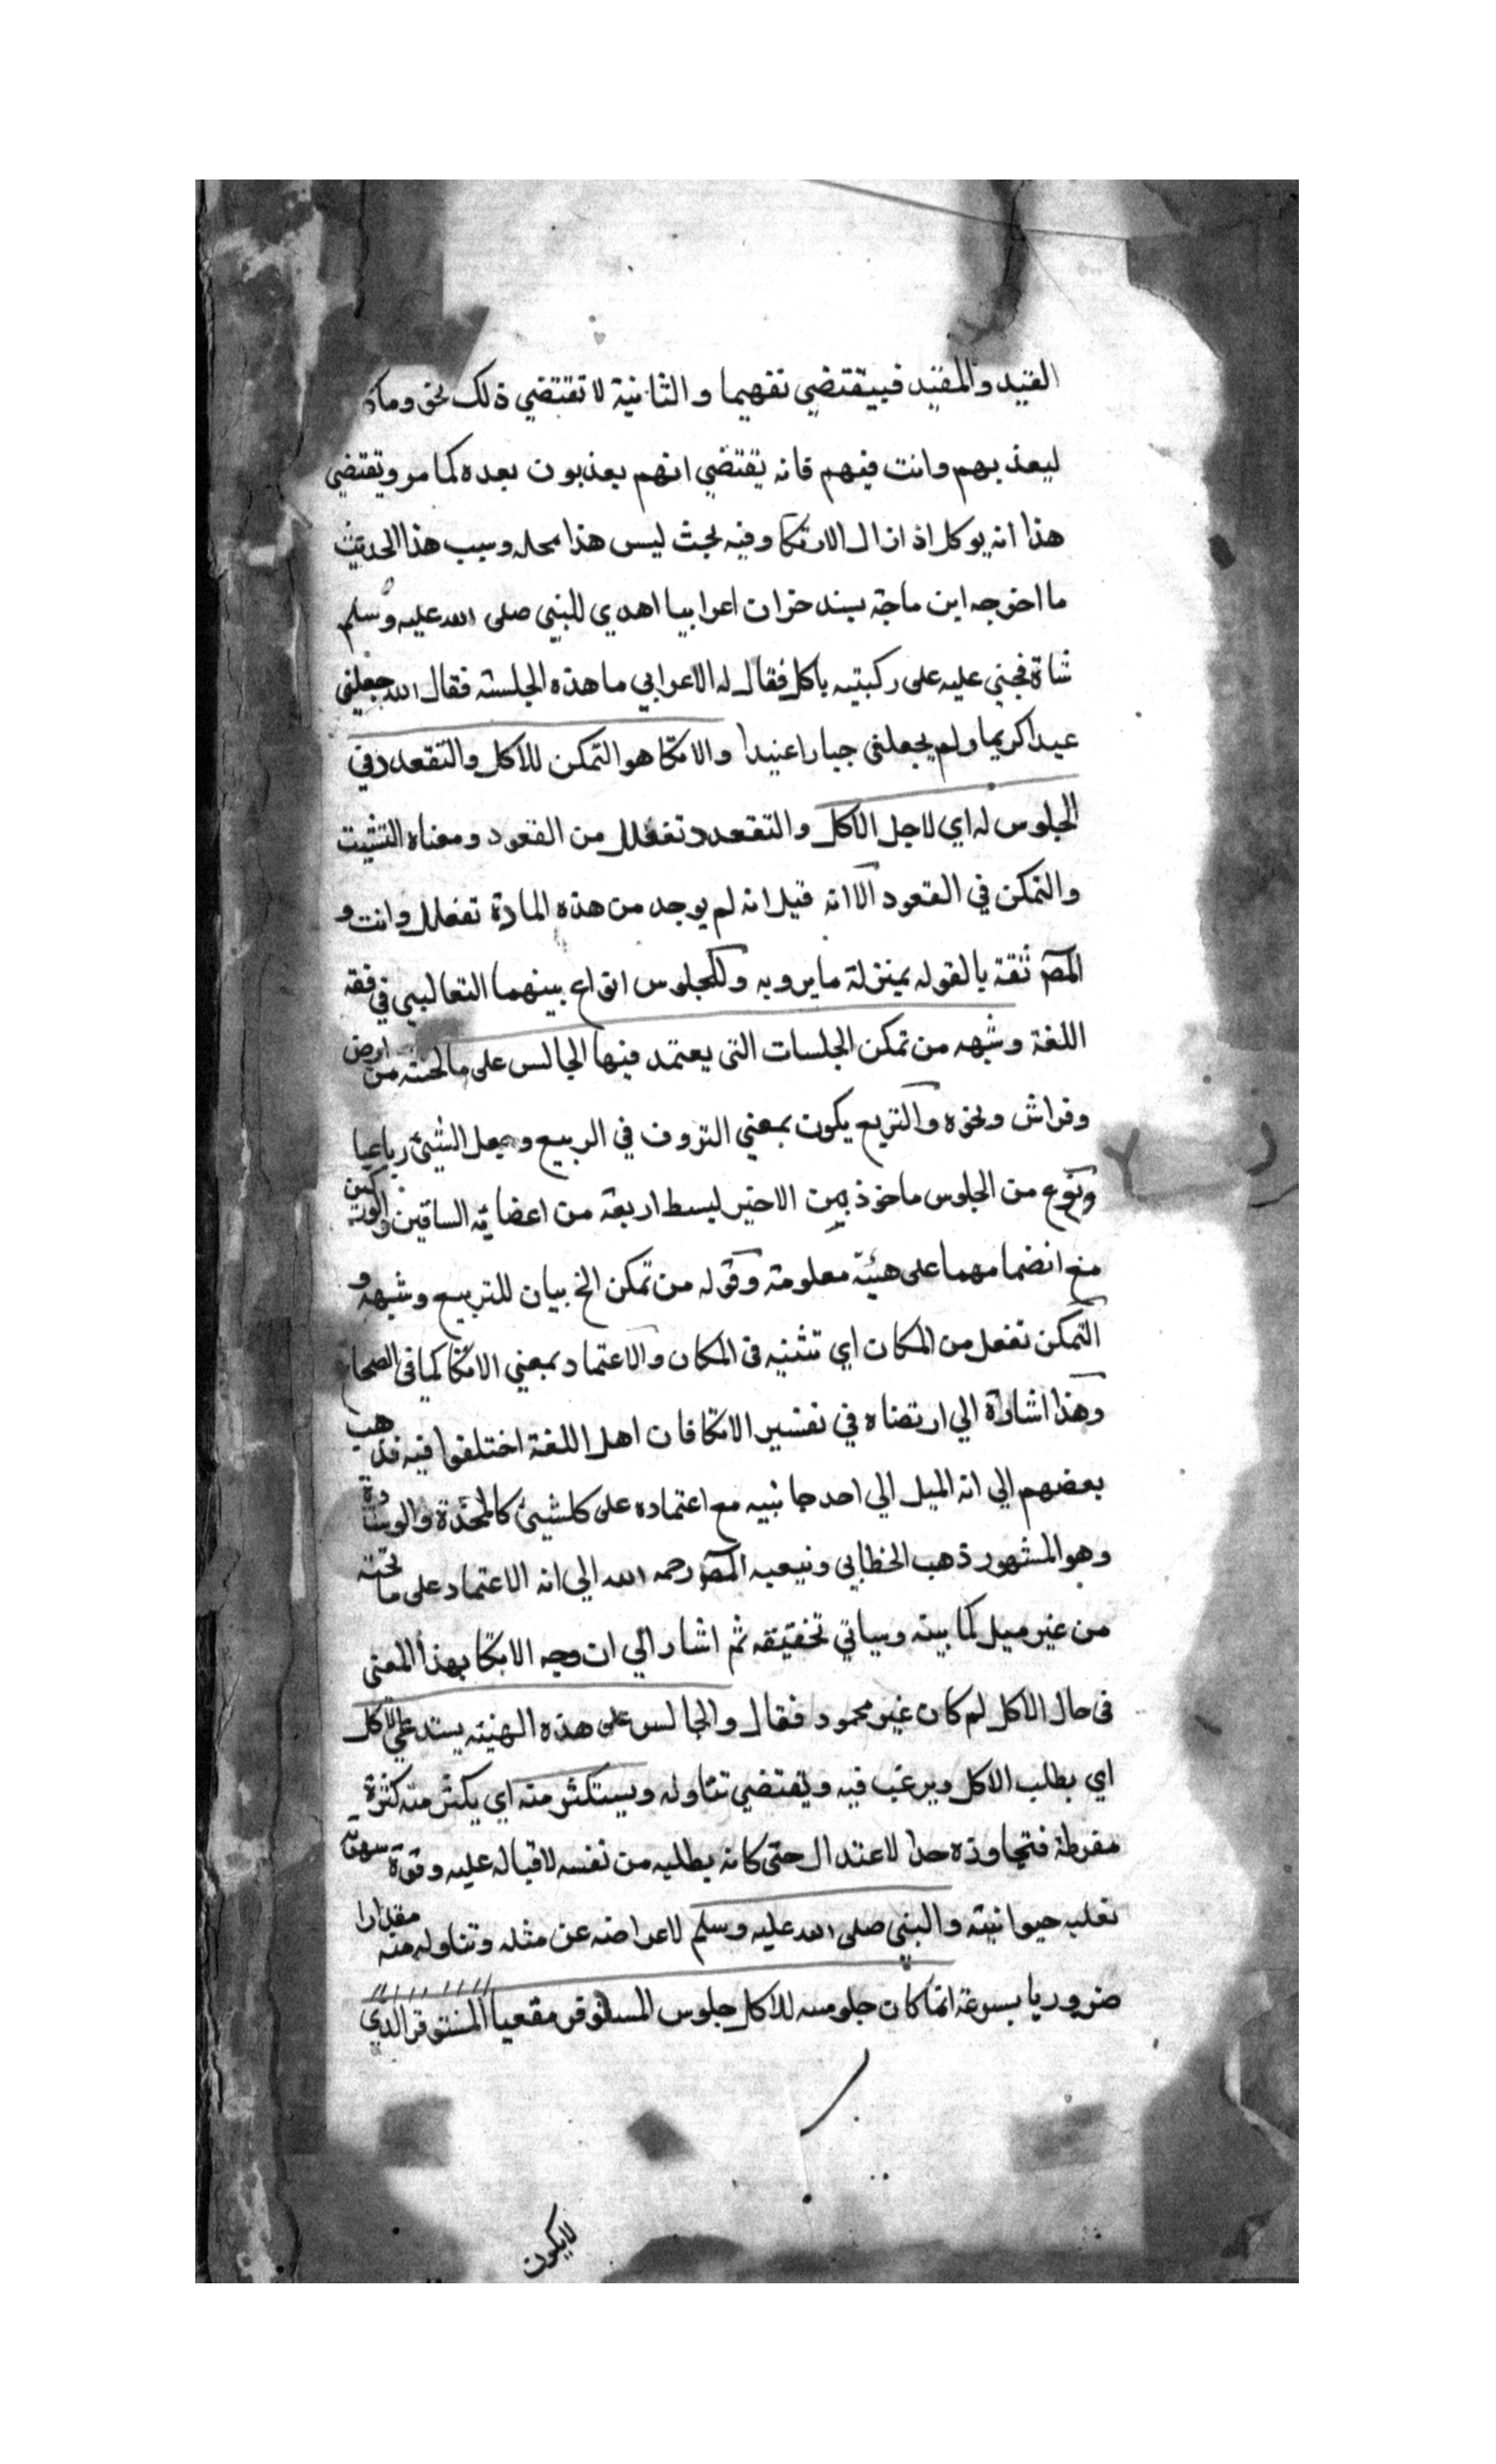 القيد والمقيد فيقتضي نفيهما والثانية لا تقتضي ذلك نحو وما كا
ليعذبهم وانت فيهم فانه يقتضي انهم يعذبون بعده كما مر ويقتضي
هذا انه يوكل اذ ازال الاتكا وفيه بحث ليس هذا محله وسبب هذا الحديث
ما اخرجه ابن ماجة بسند حزان اعرابيا اهدي للنبي صلى الله عليه وسلم
شاة فجثي عليه على ركبتيه ياكل فقال له الاعرابي ما هذه الجلسته فقال الله جعلني
عبدا كريما ولم يجعلني جبارا عنيدا والاتكا هو التمكن للاكل والتقعدد في
الجلوس له اي لاجل الاكل والتقعدد تفعلل من القعود ومعناه التثبت
والتمكن في القعود الا انه قيل انه لم يوجد من هذه المادة تفعلل وانت و
المص ثقة بالقوله بمنزلة ما يرويه وللجلوس انواع بينهما الثعالبي في فقه
اللغة وشبهه من تمكن الجلسات التي يعتمد فيها الجالس على ما تحته من ارض
وفراش ونحوه والتربع يكون بمعني التروف في الربيع وجعل الشيئ رباعيا
ونوع من الجلوس ماخوذ من الاخير لبسط اربعة من اعضائه الساقين والوركين
مع انضمامهما على هيئة معلومة وقوله من تمكن الخ بيان للتربع وشبهه و
التمكن تفعل من المكان اي تثبته في المكان والاعتماد بمعني الاتكا كما في الصحا
وهذا اشارة الي ارتضاه في تفسير الاتكا فان اهل اللغة اختلفوا فيه فذهب
بعضهم الي انه الميل الي احد جانبيه مع اعتماده على كلشيئ كالمخدة والوسادة
وهو المشهور ذهب الخطابي وتبعيه المص رحمه الله الي انه الاعتماد على ما تحته
من غير ميل كما بينه وسياتي تحقيقه ثم اشار الي ان وجه الاتكا بهذا المعني
في حال الاكل لم كان غير محمود فقال والجالس على هذه الهيئه يستدعي الاكل
اي يطلب الاكل ويرغب فيه ويقتضي تناوله ويستكثر منه اي يكثر منه كثرة
مفرطة فتجاوزه حد الاعتدال حتى كانه يطلبه من نفسه لاقباله عليه وقوة شهوته
تغلبه حيوانيته والنبي صلى الله عليه وسلم لاعراضه عن مثله وتناوله منه مقدارا
ضروريا بسرعة انما كان جلوسه للاكل جلوس المستوفز مقعيا المستوفز الذي
لايكون